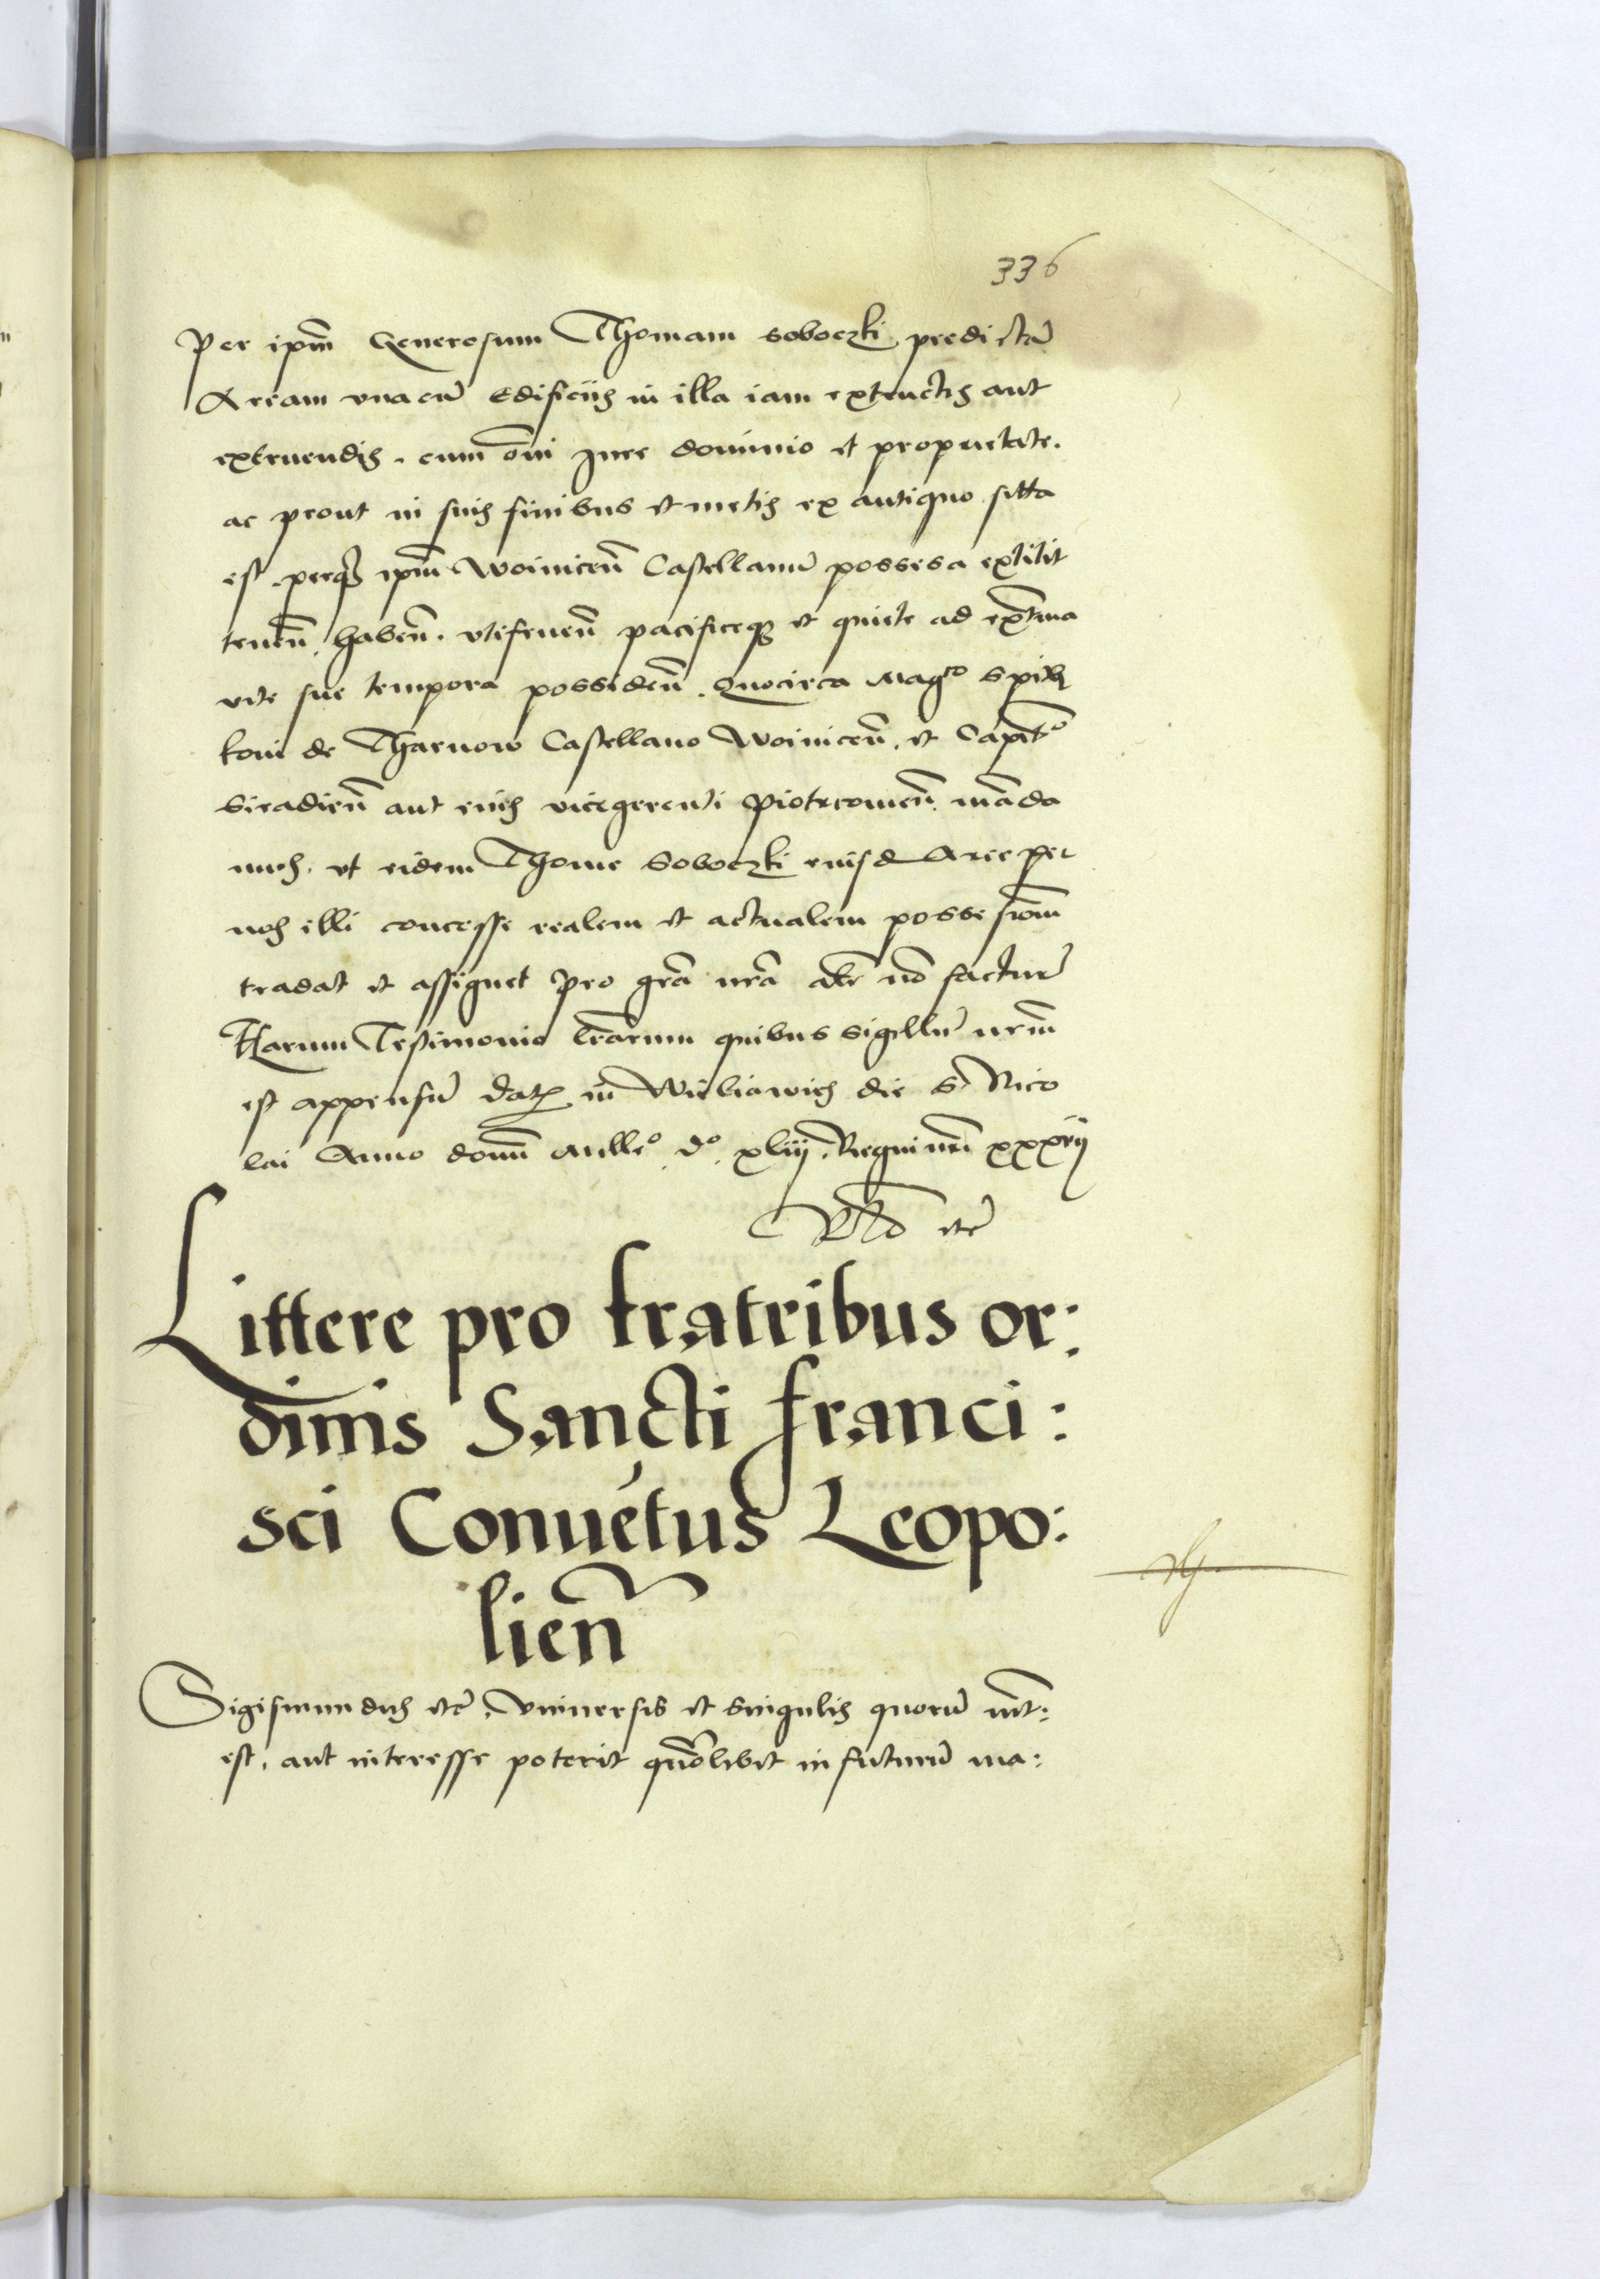 336
Per ipm̄ Generosum Thomam Soboczki predictā
Aream vnacū Edificiis in illa iam extructis aut
extruendis. cum om̄i Jure dominio et proprietate.
ac prout in suis finibus et metis ex antiquo sitta
est. perq ipm̄ Woinicen̄ Castellanū possesa extitit
tenen̄. haben̄. vtifruen̄ pacificeq et quiete ad extrema
vite sue tempora possiden̄. Quocirca Mag^co Spith
koni de Tharnow Castellano Woinicen̄. et Capit^o
Siradien̄ aut eius vicegerenti Piotrcouien̄. māda
mus. vt eidem Thome Soboczki eiusd Aree per
nos illi concesse realem et actualem possesionem
tradat et assignet pro grā nrā alr nō facturꝰ
Harum Testimonio lrārum quibus sigillū nrm̄
est appensū Dat in Wisliawicz die S Nico
lai Anno domī Mille^o. d^o. xliij. Regni nrī xxxvij
etc̄
Littere pro fratribus or:
dinis Sancti franci:
sci Conuētus Leopo:
lien̄
Sigismundus etc̄. Vniuersis et singulis quorū int:
est. aut interesse poterit quōlibet in futurū ma: